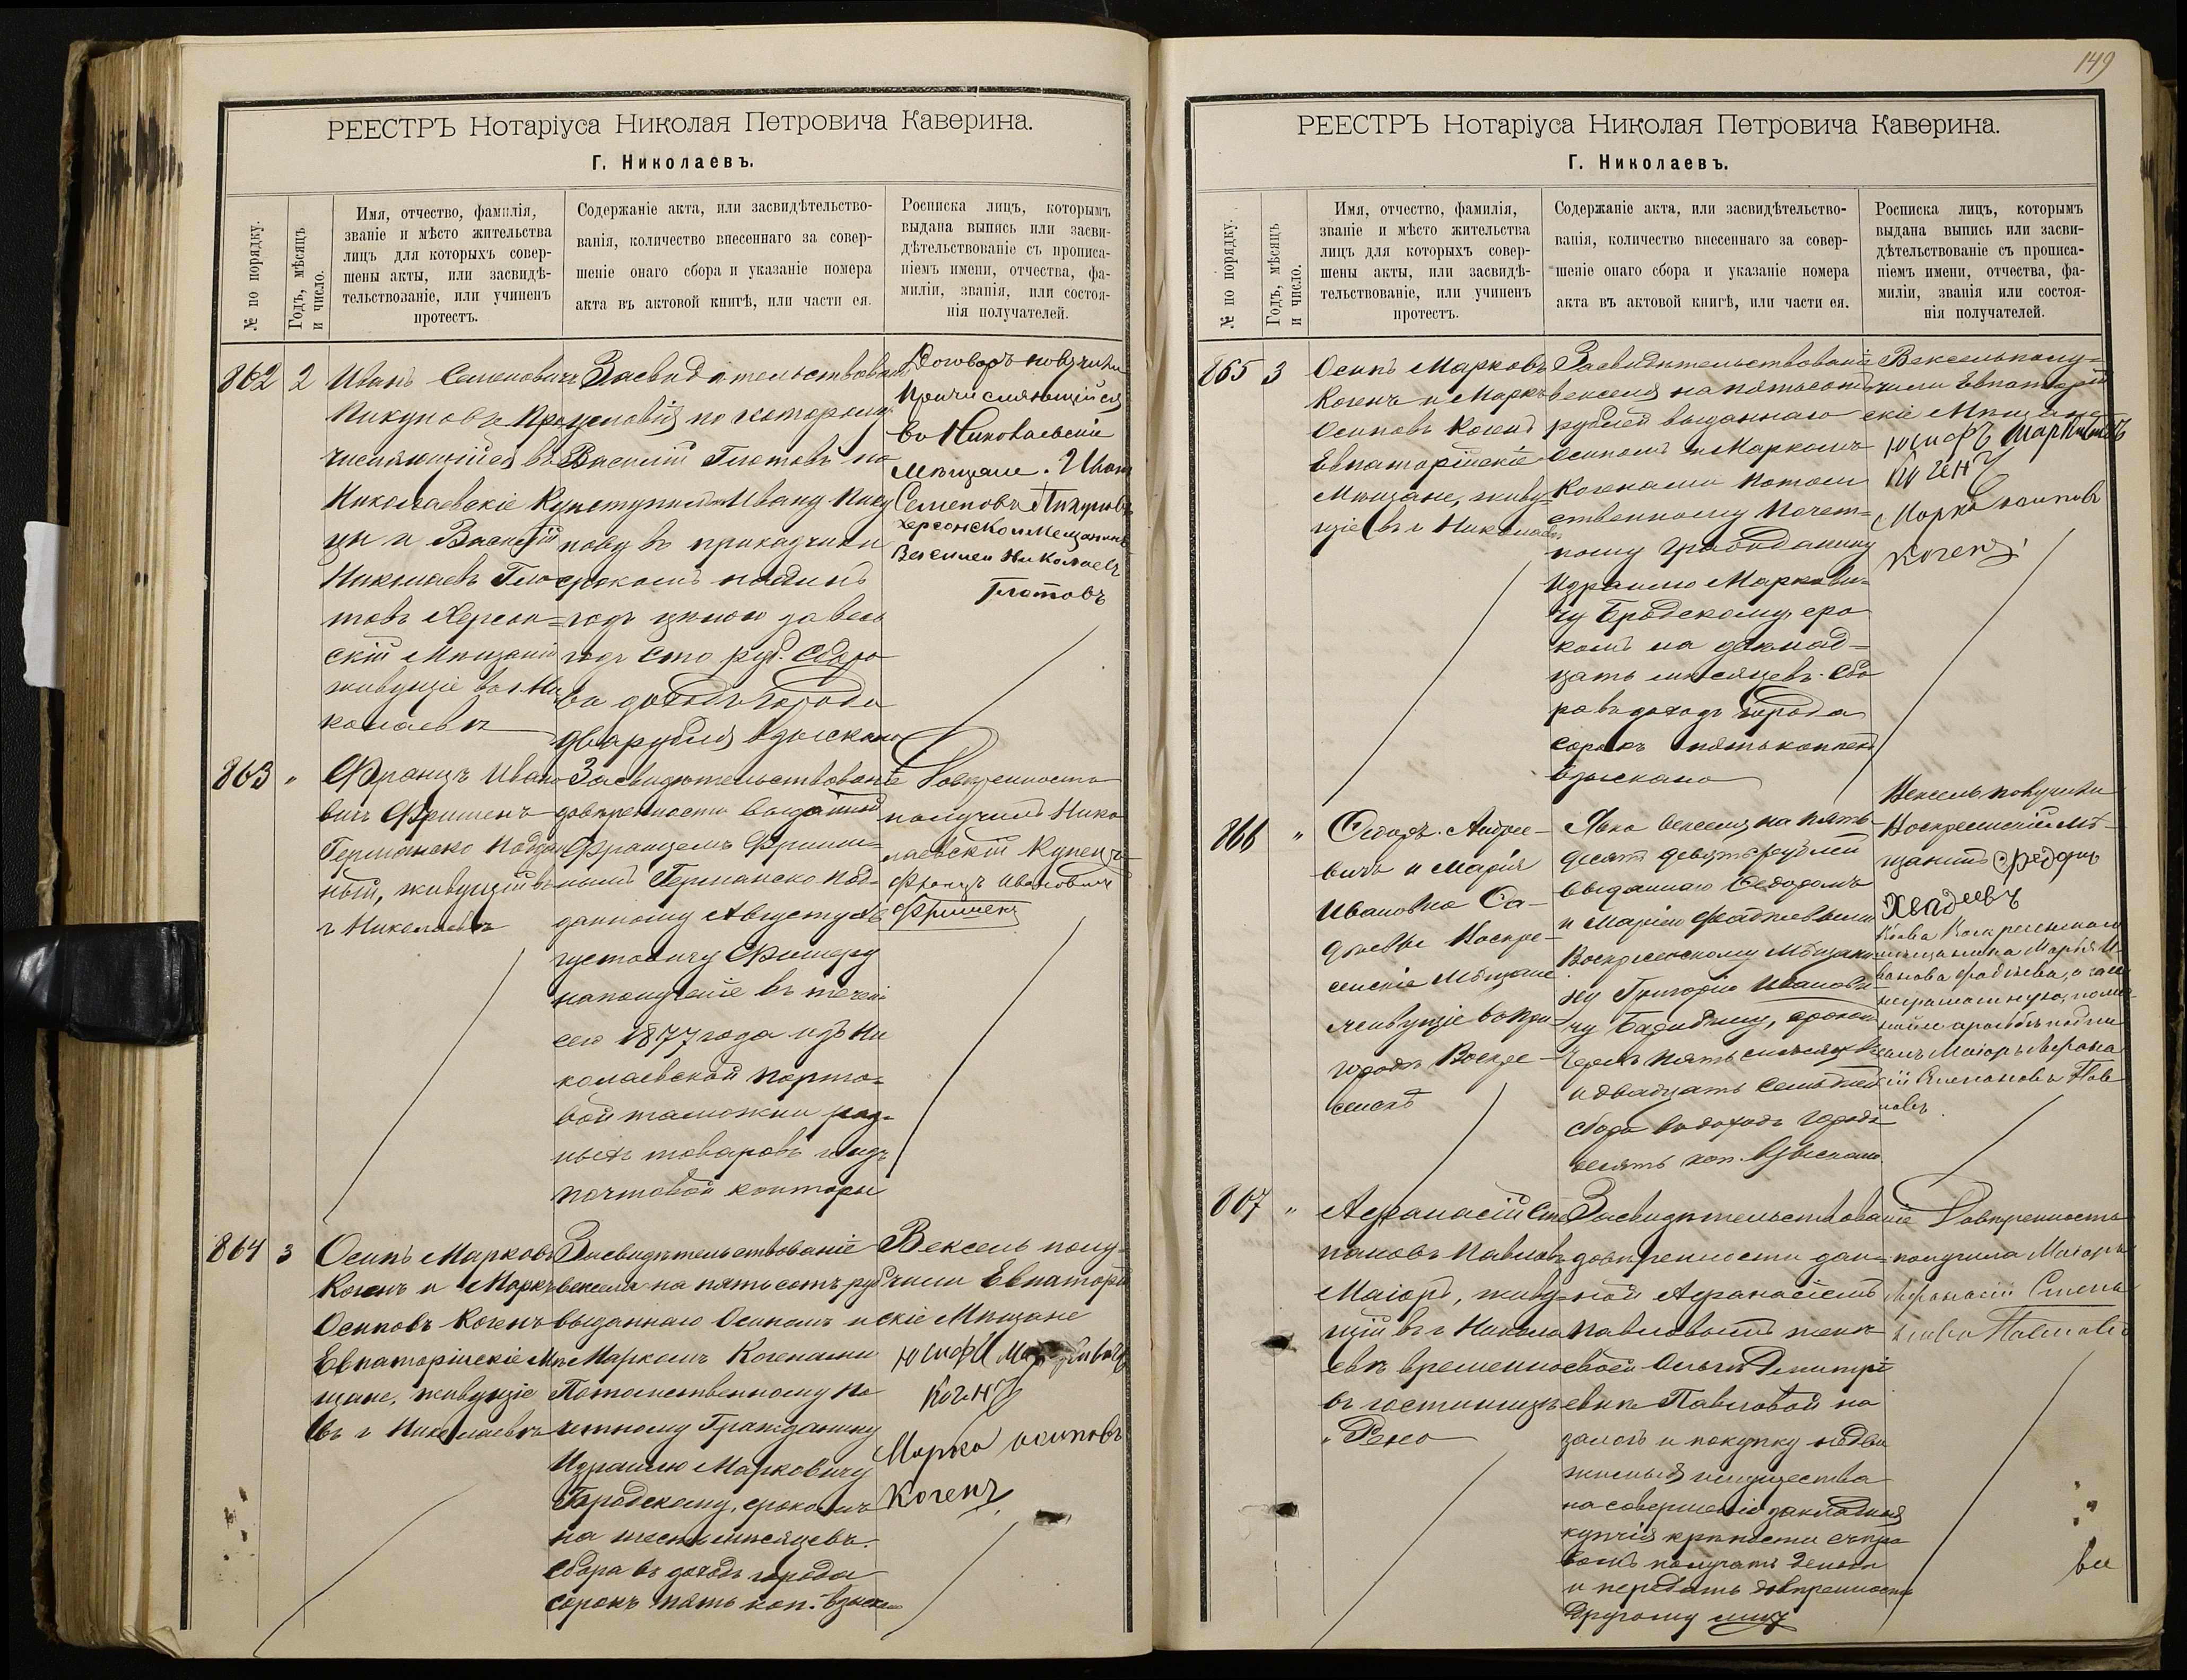 РЕЕСТРЪ Нотаріуса Николая Петровича Каверина.
Г. Николаевъ.
№ по порядку.
Годъ, мѣсяцъ
и число.
Имя, отчество, фамилія,
званіе и мѣсто жительства
лицъ для которыхъ совер-
шены акты, или засвидѣ-
тельствованіе, или учиненъ
протестъ.
Содержаніе акта, или засвидѣтельство-
ванія, количество внесеннаго за совер-
шеніе онаго сбора и указаніе номера
акта въ актовой книгѣ, или части ея.
Росписка лицъ, которымъ
выдана выпись или засви-
дѣтельствованіе съ прописа-
ніемъ имени, отчества, фа-
миліи, званія, или состоя-
нія получателей.
862
2
Иванъ Семеновичъ
Пикуновъ при
числяющійся въ
Николаевскіе Куп
цы и Василій
Николаевъ Гло
товъ Херсон=
скій Мѣщанинъ
живущіе въ г. Ни
колаевѣ
Засвидѣтельствованіе
условія по которому
Василій Глотовъ по
ступилъ къ Ивану Пику
нову въ прикащики
срокомъ на одинъ
годъ цѣною за весь
годъ Сто руб. Сбора
въ доходъ города
два рубля взыскано
Договоръ получили
Причисляющійся
въ Николаевскіе
Мѣщане. Иванъ
Семеновъ Пикуновъ
Херсонской Мещанинъ
Василей Николаевъ
Глотовъ
863
"
Францъ Ивано
вичъ Фришенъ
Германско Поддан
ный, живущій въ
г Николаевѣ
Засвидѣтельствованіе
довѣренности выданной
Францемъ Фрише=
нымъ Германско под=
данному Августу Ав
густовичу Фишеру
на полученіе въ теченіи
сего 1877 года изъ Ни
колаевской порто=
вой таможни раз=
ныхъ товаровъ и изъ
почтовой конторы
Довѣренность
получилъ Нико
лаевскій Купецъ
Францъ Ивановичъ
Фришенъ
864
3
Осипъ Марковъ
Когенъ и Маркъ
Осиповъ Когенъ
Евпаторійскіе Мѣ
щане, живущіе
въ г Николаевѣ
Засвидѣтельствованіе
векселя на пятьсотъ руб
выданнаго Осипомъ и
Маркомъ Когенами
Потомственному По
четному Гражданину
Израилю Марковичу
Бродскому, срокомъ
на шесть мѣсяцевъ.
Сбора въ доходъ города
сорокъ пять коп. взыскано
Вексель полу-
чили Евпаторій
скіе Мѣщане
Когенъ
Марко осиповъ
Когенъ
149
РЕЕСТРЪ Нотаріуса Николая Петровича Каверина.
Г. Николаевъ.
№ по порядку.
Годъ, мѣсяцъ
и число.
Имя, отчество, фамилія,
званіе и мѣсто жительства
лицъ для которыхъ совер-
шены акты, или засвидѣ-
тельствованіе, или учиненъ
протестъ.
Содержаніе акта, или засвидѣтельство-
ванія, количество внесеннаго за совер-
шеніе онаго сбора и указаніе номера
акта въ актовой книгѣ, или части ея.
Росписка лицъ, которымъ
выдана выпись или засви-
дѣтельствованіе съ прописа-
ніемъ имени, отчества, фа-
миліи, званія или состоя-
нія получателей.
865
3
Осипъ Марковъ
Когенъ и Маркъ
Осиповъ Когенъ
Евпаторійскіе
Мѣщане, живу=
щіе въ г Николаевѣ
Засвидѣтельствованіе
векселя на пятьсотъ
рублей выданнаго
Осипомъ и Маркомъ
Когенами Потом
ственному Почет=
ному Гражданину
Израилю Маркови=
чу Бродскому, сро
комъ на двѣнад=
цать мѣсяцевъ. Сбо
ра въ доходъ города
сорокъ пять копѣекъ
взыскано
Вексель полу=
чили Евпаторій
скіе Мѣщане
Когенъ
Марко осиповъ
Когенъ
866
"
Ѳедоръ Андрее-
вичъ и Марія
Ивановна Фа-
дѣевы Воскре-
сенскіе Мѣщане
живущіе въ при-
городѣ Воскре-
сенскѣ
Явка векселя на пять-
десятъ девять рублей
выданнаго Ѳедоромъ
и Маріею Фадѣевыми
Воскресенскому Мѣщани
ну Григорію Иванови
чу, срокомъ
черезъ пять мѣсяцевъ
и двадцать семь дней
сбора въ доходъ города
десять коп. взыскано.
Вексель получили
Воскресенскій Мѣ-
щанинъ
867
"
Афанасій Сте
пановъ Павловъ
Маіоръ, живу=
щій въ г Никола
евѣ временно
въ гостинницѣ
"Рено
Засвидѣтельствованіе
довѣренности дан=
ной Афанасіемъ
Павловымъ женѣ
своей Ольгѣ Дмитрі
евнѣ Павловой на
залогъ и покупку недви
жимыя имущества
на совершеніе закладныя
купчія крѣпости съ пра
вомъ получать деньги
и передать довѣренность
другому лицу
Довѣренность
получилъ Маіоръ
Афанасій Степа
новъ Павловъ